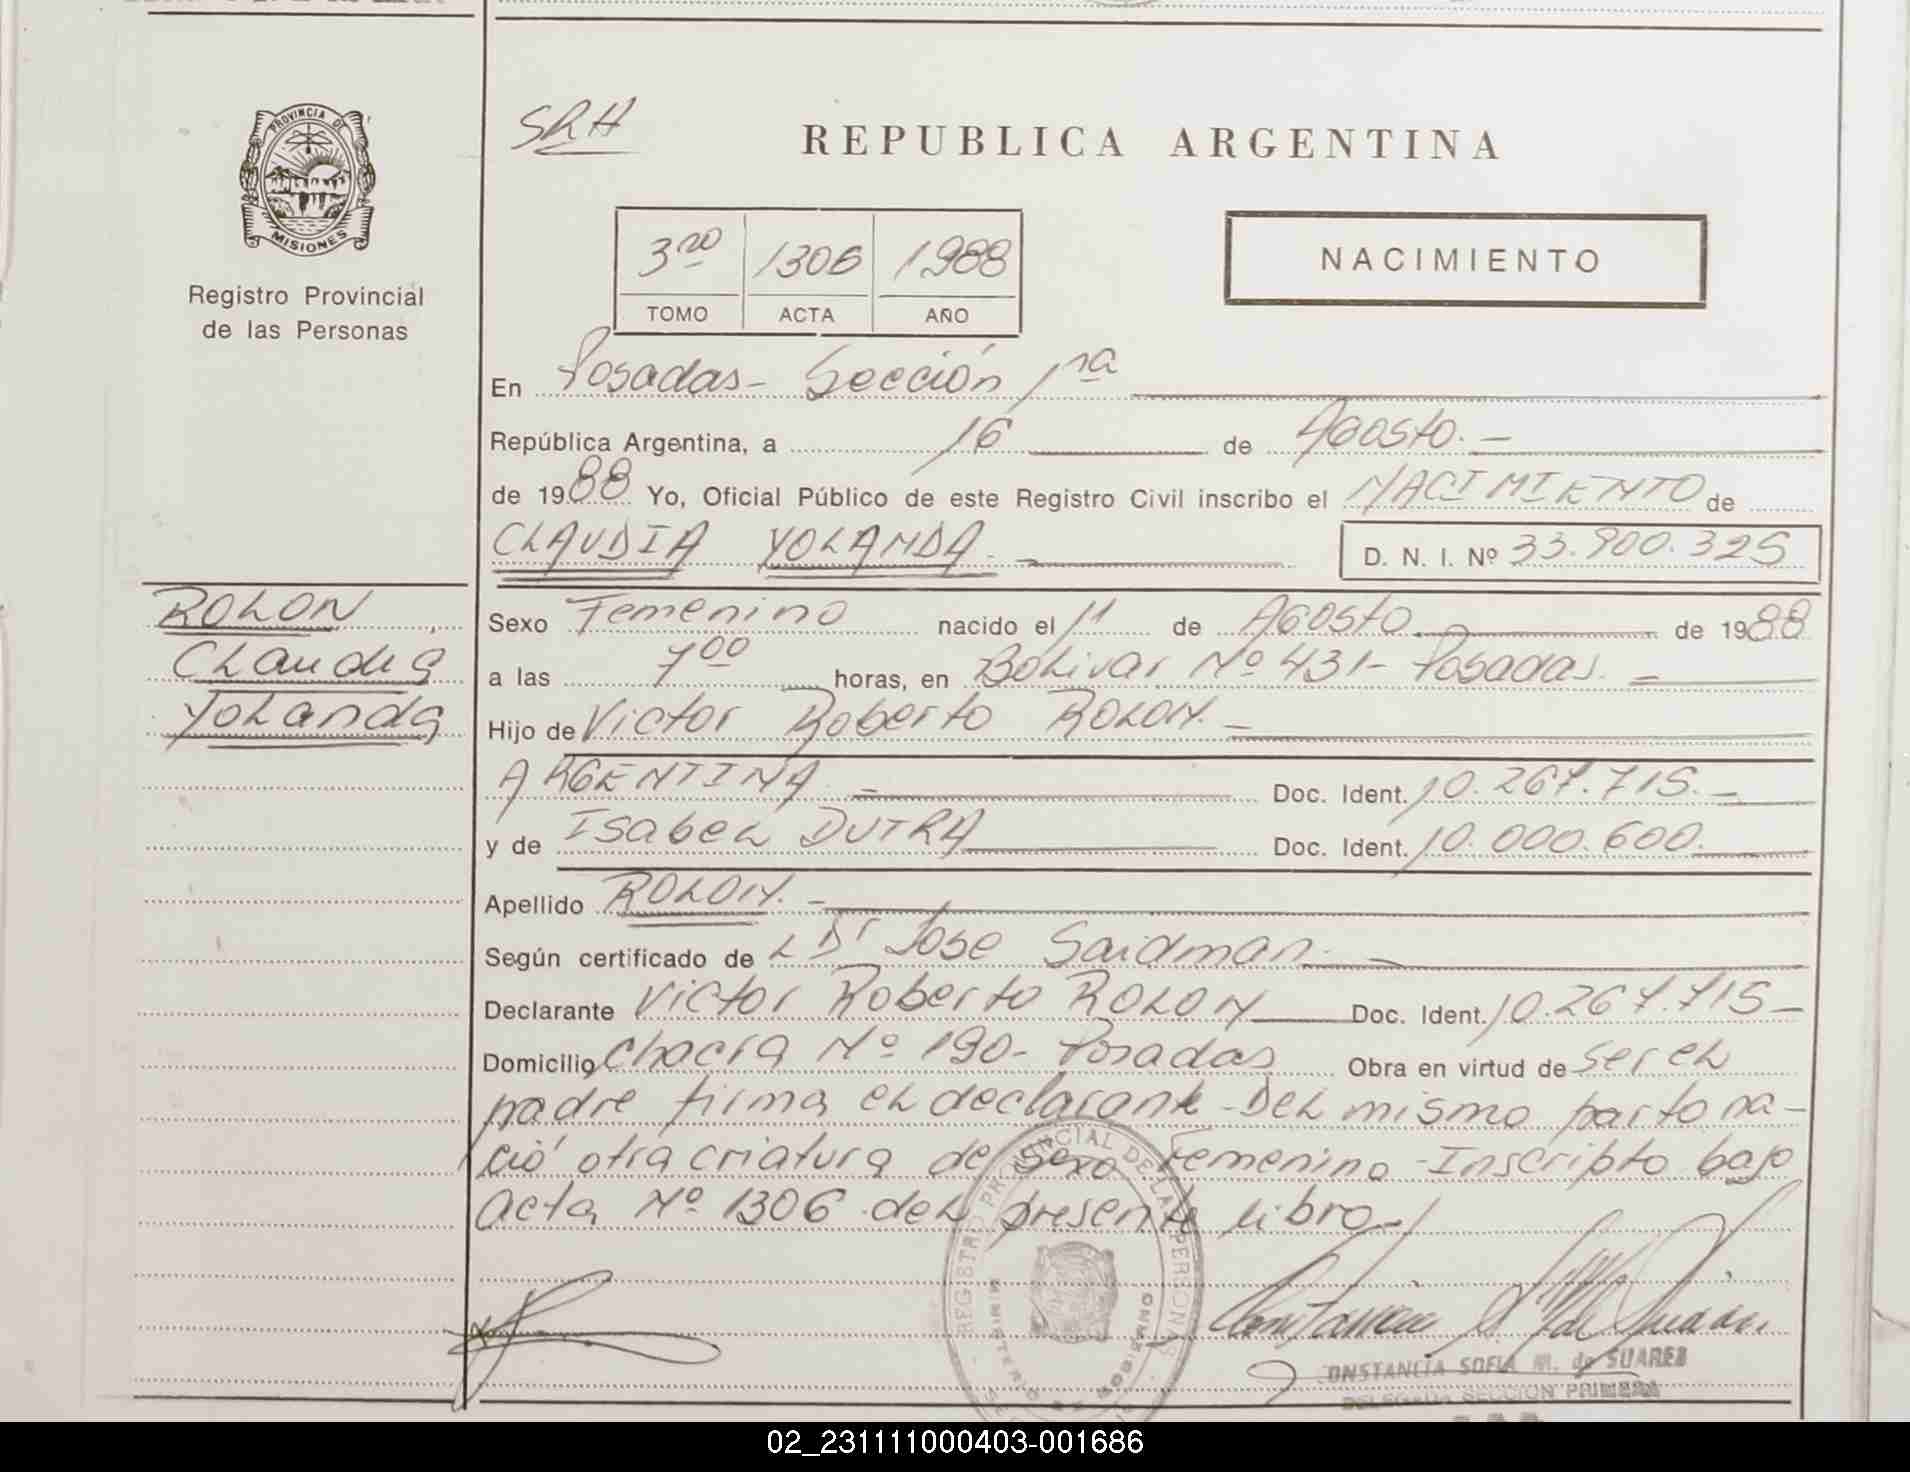 PROVINCIA DE
MISIONES
Registro Provincial
de las Personas
SRH
REPUBLICA ARGENTINA
3ro 1306 1988
TOMO ACTA AÑO
NACIMIENTO
En Posadas - Sección 1ra
República Argentina, a 16 de Agosto. -
de 1988 Yo, Oficial Público de este Registro Civil inscribo el NACIMIENTO de
CLAUDIA YOLANDA. - D. N. I. Nº 33.900.325
ROLON
Claudia
Yolanda
Sexo Femenino nacido el 11 de Agosto de 1988
a las 7 00 horas, en Bolivar Nº 431 - Posadas. -
Hijo de Victor Roberto ROLON. -
ARGENTINA - Doc. Ident. 10.267.715. -
y de Isabel DUTRA Doc. Ident. 10.000.600.
Apellido ROLON. -
Según certificado de L Dr Jose Saidman. -
Declarante Victor Roberto ROLON Doc. Ident. 10.267.715 -
Domicilio Chacra Nº 190 - Posadas Obra en virtud de ser el
padre firma el declarante - Del mismo parto na-
ció otra criatura de sexo Femenino - Inscripto bajo
Acta Nº 1306 del presente libro -
REGISTRO PROVINCIAL DE LAS PERSONAS
MINISTERIO DE GOBIERNO
ONSTANCIA SOFIA M. de SUAREZ
DELEGADA SECCION PRIMERA
02_231111000403-001686